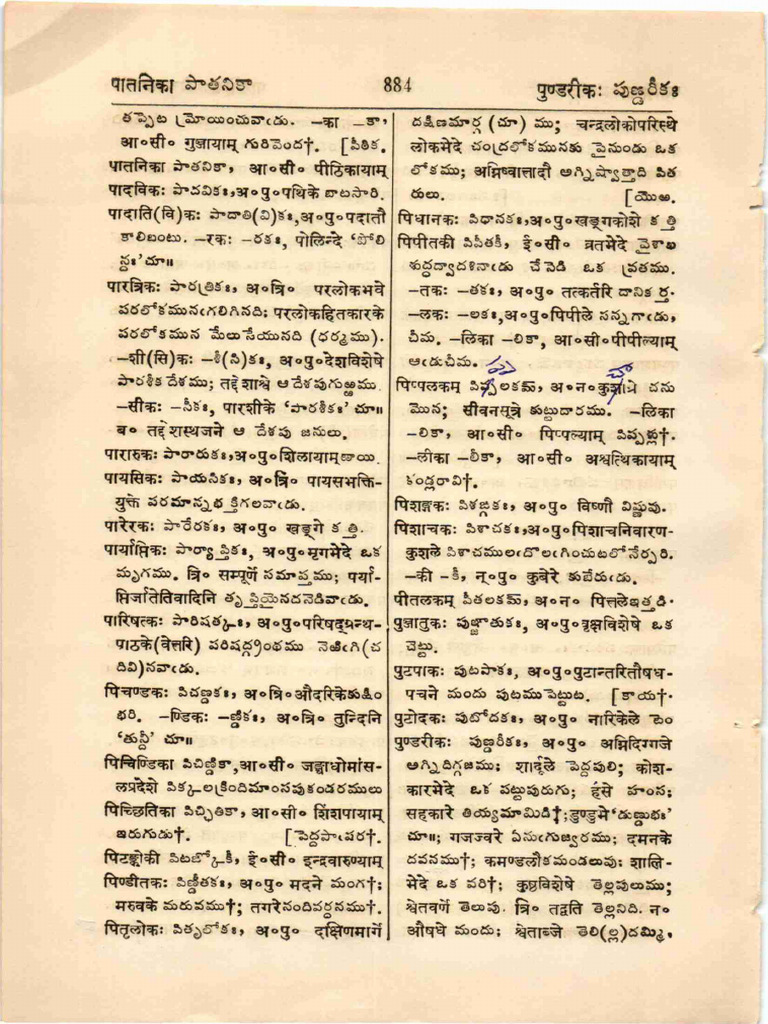 पातनिका పాతనికా 884 पुण्डरीकः పుణ్డరీకః
తప్పెట మ్రోయించువాఁడు. –का –కా,
आ॰सी॰ गुञ्जायाम् గురివెంద†. [పీఠిక.
पातनिका పాతనికా, आ॰सी॰ पीठिकायाम्
पादविकः పాదవికః, अ॰पु॰पथिके బాటసారి.
पादाति(वि)कः పాదాతి(వి)కః, अ॰पु॰पदातौ
కాలిబంటు. –रकः –రకః, పోలిన్దే 'పోలి
న్దః' చూ॥
पारत्रिकः పారత్రికః, अ॰त्रि॰ परलोकभवे
పరలోకమునఁగలిగినది; परलोकहितकारके
పరలోకమున మేలుసేయునది (ధర్మము).
–शी(सि)कः –శీ(సి)కః, अ॰पु॰देशविशेषे
పారశీకదేశము; तद्देशाश्वे ఆ దేశపుగుఱ్ఱము.
–सीकः –సీకః, पारशीके 'పారశీకః' చూ॥
ब॰ तद्देशस्थजने ఆ దేశపు జనులు.
पारारुकः పారారుకః, अ॰पु॰शिलायाम् ఱాయి.
पायसिकः పాయసికః, अ॰त्रि॰ पायसभक्ति-
युक्ते పరమాన్నభక్తిగలవాఁడు.
पारेरकः పారేరకః, अ॰पु॰ खड्गे కత్తి.
पार्याप्तिकः పార్యాప్తికః, अ॰पु॰मृगभेदे ఒక
మృగము. त्रि॰ सम्पूर्णे సమాప్తము; पर्या-
प्तिर्जातेतिवादिनि తృప్తియైనదనెడివాఁడు.
पारिषत्कः పారిషత్కః, अ॰पु॰परिषद्ग्रन्थ-
पाठके(वेत्तरि) పరిషద్గ్రంథము నెఱిఁగి(చ
దివి)నవాఁడు.
पिचण्डकः పిచణ్డకః, अ॰त्रि॰औदरिकेకుక్షిం
భరి. –ण्डिकः –ణ్డికః, अ॰त्रि॰ तुन्दिनि
'తున్దీ' చూ॥
पिचिण्डिका పిచిణ్డికా, आ॰सी॰ जङ्घाधोमांस-
लप्रदेशे పిక్కలక్రిందిమాంసపుకండరములు
पिच्छितिका పిచ్ఛితికా, आ॰सी॰ शिंशपायाम्
ఇరుగుడు†. [పెద్దపాపర†.
पिटङ्कोकी పిటఙ్కోకీ, ई॰सी॰ इन्द्रवारुण्याम्
पिण्डीतकः పిణ్డీతకః, अ॰पु॰ मदने మంగ†;
मरुवके మరువము†; तगरेనందివర్ధనము†.
पितृलोकः పితృలోకః, अ॰पु॰ दक्षिणमार्गे
దక్షిణమార్గ (చూ) ము; चन्द्रलोकोपरिस्थे
लोकभेदे చంద్రలోకమునకు పైనుండు ఒక
లోకము; अग्निष्वात्तादौ అగ్నిష్వాత్తాది పితరులు. [యొఱ.
पिधानकः పిధానకః, अ॰पु॰खङ्गकोशे కత్తి
पिपीतकी పిపీతకీ, ई॰सी॰ व्रतभेदे వైశాఖ
శుద్ధద్వాదశినాఁడు చేసెడి ఒక వ్రతము.
–तकः –తకః, अ॰पु॰ तत्कर्तरि దానికర్త.
–लकः –లకః, अ॰पु॰पिपीले సన్నగాఁడు,
చీమ. –लिका –లికా, आ॰सी॰पिपील्याम्
ఆఁడుచీమ.
पिप्पलकम् పిప్పలకమ్, अ॰न॰कुचाग्रे చను
మొన; सीवनसूत्रे కుట్టుదారము. –लिका
–లికా, आ॰सी॰ पिप्पल्याम् పిప్పళ్లు†.
–लीका –లీకా, आ॰सी॰ अश्वत्थिकायाम्
కండ్లరావి†.
पिशङ्गकः పిశఙ్గకః, अ॰पु॰ विष्णौ విష్ణువు.
पिशाचकः పిశాచకః, अ॰पु॰पिशाचनिवारण-
कुशले పిశాచములఁదొలఁగించుటలోనేర్పరి.
–की –కీ, न्॰पु॰ कुबेरे కుబేరుఁడు.
पीतलकम् పీతలకమ్, अ॰न॰ पित्तलेఇత్తడి.
पुञ्जातुकः పుఞ్జాతుకః, अ॰पु॰ वृक्षविशेषे ఒక
చెట్టు.
पुटपाकः పుటపాకః, अ॰पु॰पुटान्तरितौषध-
पचने మందు పుటముపెట్టుట. [కాయ†.
पुटोदकः పుటోదకః, अ॰पु॰ नारिकेले టెం
पुण्डरीकः పుణ్డరీకః, अ॰पु॰ अग्निदिग्गजे
అగ్నిదిగ్గజము; शार्दूले పెద్దపులి; कोश-
कारभेदे ఒక పట్టుపురుగు; हंसे హంస;
सहकारे తియ్యమామిడి†; डुण्डुभे 'డుణ్డుభః'
చూ॥; गजज्वरे ఏనుఁగుజ్వరము; दमनके
దవనము†; कमण्डलौకమండలువు: शालि-
भेदे ఒక వరి†; कुष्ठविशेषे తెల్లపులుము;
श्वेतवर्णे తెలుపు. त्रि॰ तद्वति తెల్లనిది. न॰
औषधे మందు; श्वेताब्जे తెలి(ల్ల)దమ్మి,